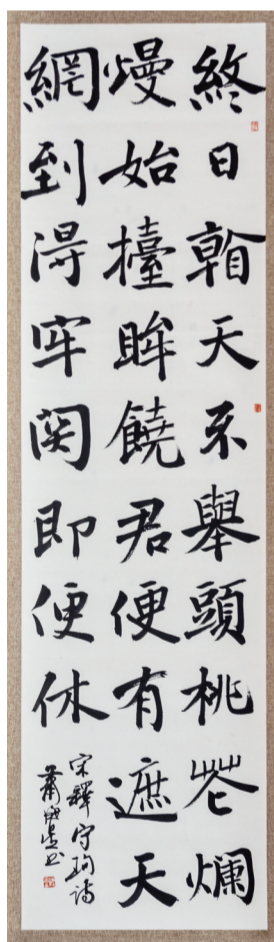 終日看天不舉頭桃花爛
熳始擡眸饒君便有遮天
網到得牢関即便休
宋釋守珣詩
蕭書